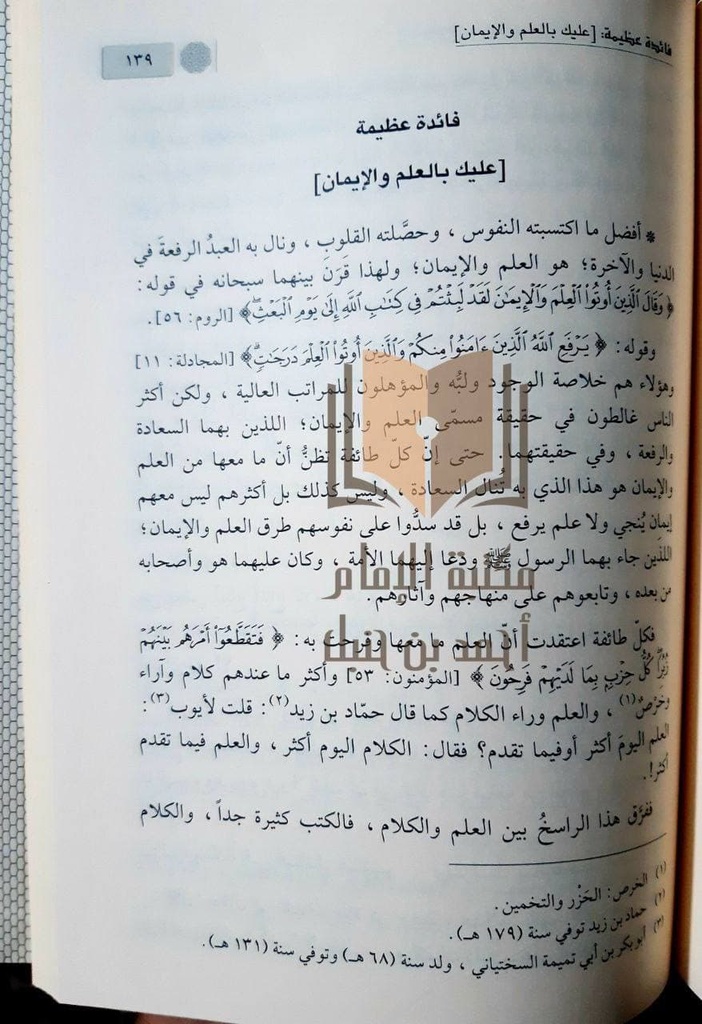 فائدة عظيمة: [عليك بالعلم والإيمان]
١٣٩
فائدة عظيمة
[عليك بالعلم والإيمان]
* أفضل ما اكتسبته النفوس ، وحصَّلته القلوب ، ونال به العبدُ الرفعةَ في
الدنيا والآخرة؛ هو العلم والإيمان؛ ولهذا قَرَن بينهما سبحانه في قوله:
﴿ وَقَالَ ٱلَّذِينَ أُوتُوا۟ ٱلْعِلْمَ وَٱلْإِيمَٰنَ لَقَدْ لَبِثْتُمْ فِى كِتَٰبِ ٱللَّهِ إِلَىٰ يَوْمِ ٱلْبَعْثِ ﴾ [الروم: ٥٦].
وقوله: ﴿ يَرْفَعِ ٱللَّهُ ٱلَّذِينَ ءَامَنُوا۟ مِنكُمْ وَٱلَّذِينَ أُوتُوا۟ ٱلْعِلْمَ دَرَجَٰتٍ ﴾ [المجادلة: ١١]
وهؤلاء هم خلاصة الوجود ولبُّه والمؤهلون للمراتب العالية ، ولكن أكثر
الناس غالطون في حقيقة مسمّى العلم والإيمان؛ اللذين بهما السعادة
والرفعة ، وفي حقيقتهما. حتى إنَّ كلّ طائفة تظنُّ أنّ ما معها من العلم
والإيمان هو هذا الذي به تُنال السعادة ، وليس كذلك بل أكثرهم ليس معهم
إيمان يُنجي ولا علم يرفع ، بل قد سدُّوا على نفوسهم طرق العلم والإيمان؛
اللذَين جاء بهما الرسول ﷺ ودعا إليهما الأمة ، وكان عليهما هو وأصحابه
من بعده ، وتابعوهم على منهاجهم وآثارهم.
فكلّ طائفة اعتقدت أنّ العلم ما معها وفرحت به: ﴿ فَتَقَطَّعُوٓا۟ أَمْرَهُم بَيْنَهُمْ
زُبُرًا ۖ كُلُّ حِزْبٍۭ بِمَا لَدَيْهِمْ فَرِحُونَ ﴾ [المؤمنون: ٥٣] وأكثر ما عندهم كلام وآراء
وخَرْصٌ(١) ، والعلم وراء الكلام كما قال حمّاد بن زيد(٢): قلت لأيوب(٣):
العلم اليومَ أكثر أوفيما تقدم؟ فقال: الكلام اليوم أكثر ، والعلم فيما تقدم
أكثر!.
ففرَّق هذا الراسخُ بين العلم والكلام ، فالكتب كثيرة جداً ، والكلام
(١) الخرص: الحَزْر والتخمين.
(٢) حماد بن زيد توفي سنة (١٧٩ هـ).
(٣) أبو بكر بن أبي تميمة السختياني ، ولد سنة (٦٨ هـ) وتوفي سنة (١٣١ هـ).
مكتبة الإمام
أحمد بن حنبل